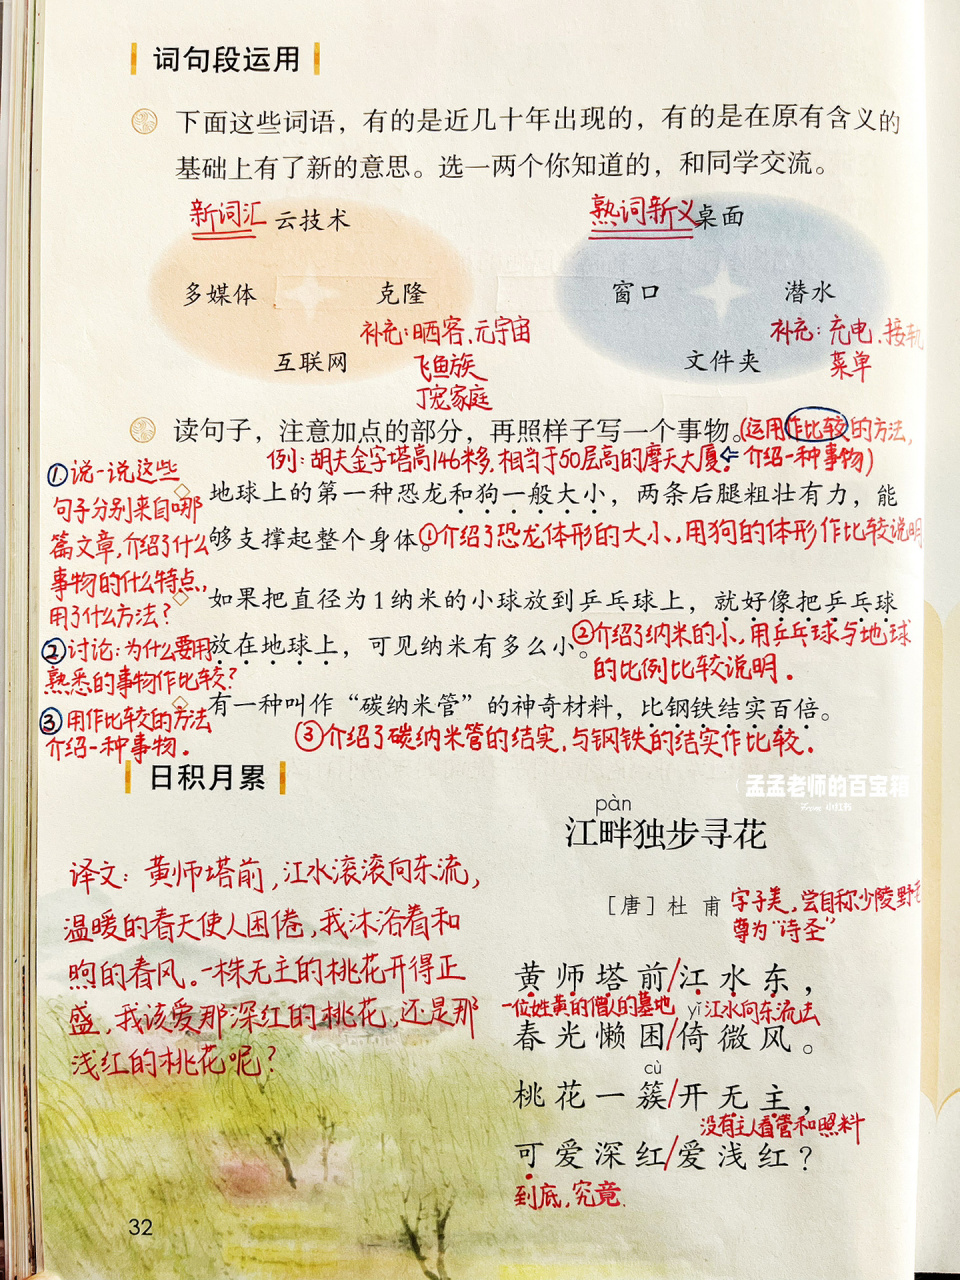 词句段运用
下面这些词语，有的是近几十年出现的，有的是在原有含义的
基础上有了新的意思。选一两个你知道的，和同学交流。
新词汇 云技术
熟词新义 桌面
多媒体 克隆
窗口 潜水
补充：晒客、元宇宙
补充：充电、接轨
互联网 飞鱼族
文件夹 菜单
丁宠家庭
读句子，注意加点的部分，再照样子写一个事物。(运用作比较的方法，
介绍一种事物)
例：胡夫金字塔高146米多，相当于50层高的摩天大厦。
①说一说这些
句子分别来自哪
篇文章，介绍了什么
事物的什么特点，
用了什么方法？
②讨论：为什么要用
熟悉的事物作比较？
③用作比较的方法
介绍一种事物。
地球上的第一种恐龙和狗一般大小，两条后腿粗壮有力，能
够支撑起整个身体。①介绍了恐龙体形的大小，用狗的体形作比较说明
如果把直径为1纳米的小球放到乒乓球上，就好像把乒乓球
放在地球上，可见纳米有多么小。②介绍了纳米的小，用乒乓球与地球
的比例比较说明。
有一种叫作“碳纳米管”的神奇材料，比钢铁结实百倍。
③介绍了碳纳米管的结实，与钢铁的结实作比较。
日积月累
孟孟老师的百宝箱
小红书
pàn
江畔独步寻花
［唐］杜甫 字子美，尝自称少陵野老
尊为“诗圣”
译文：黄师塔前，江水滚滚向东流，
温暖的春天使人困倦，我沐浴着和
煦的春风。一株无主的桃花开得正
盛，我该爱那深红的桃花，还是那
浅红的桃花呢？
黄师塔前/江水东，
一位姓黄的僧人的墓地 yǐ 江水向东流去
春光懒困/倚微风。
cù
桃花一簇/开无主，
没有主人看管和照料
可爱深红/爱浅红？
到底，究竟
32